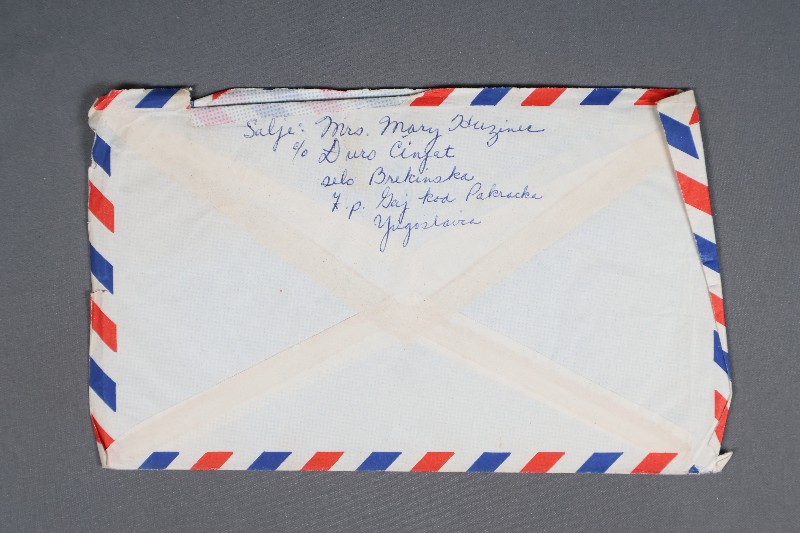 Salje: Mrs. Mary Huzinec
c/o Duro Cinfat
selo Brekinska
Z. p. Gaj kod Pakracka
Yugoslavia